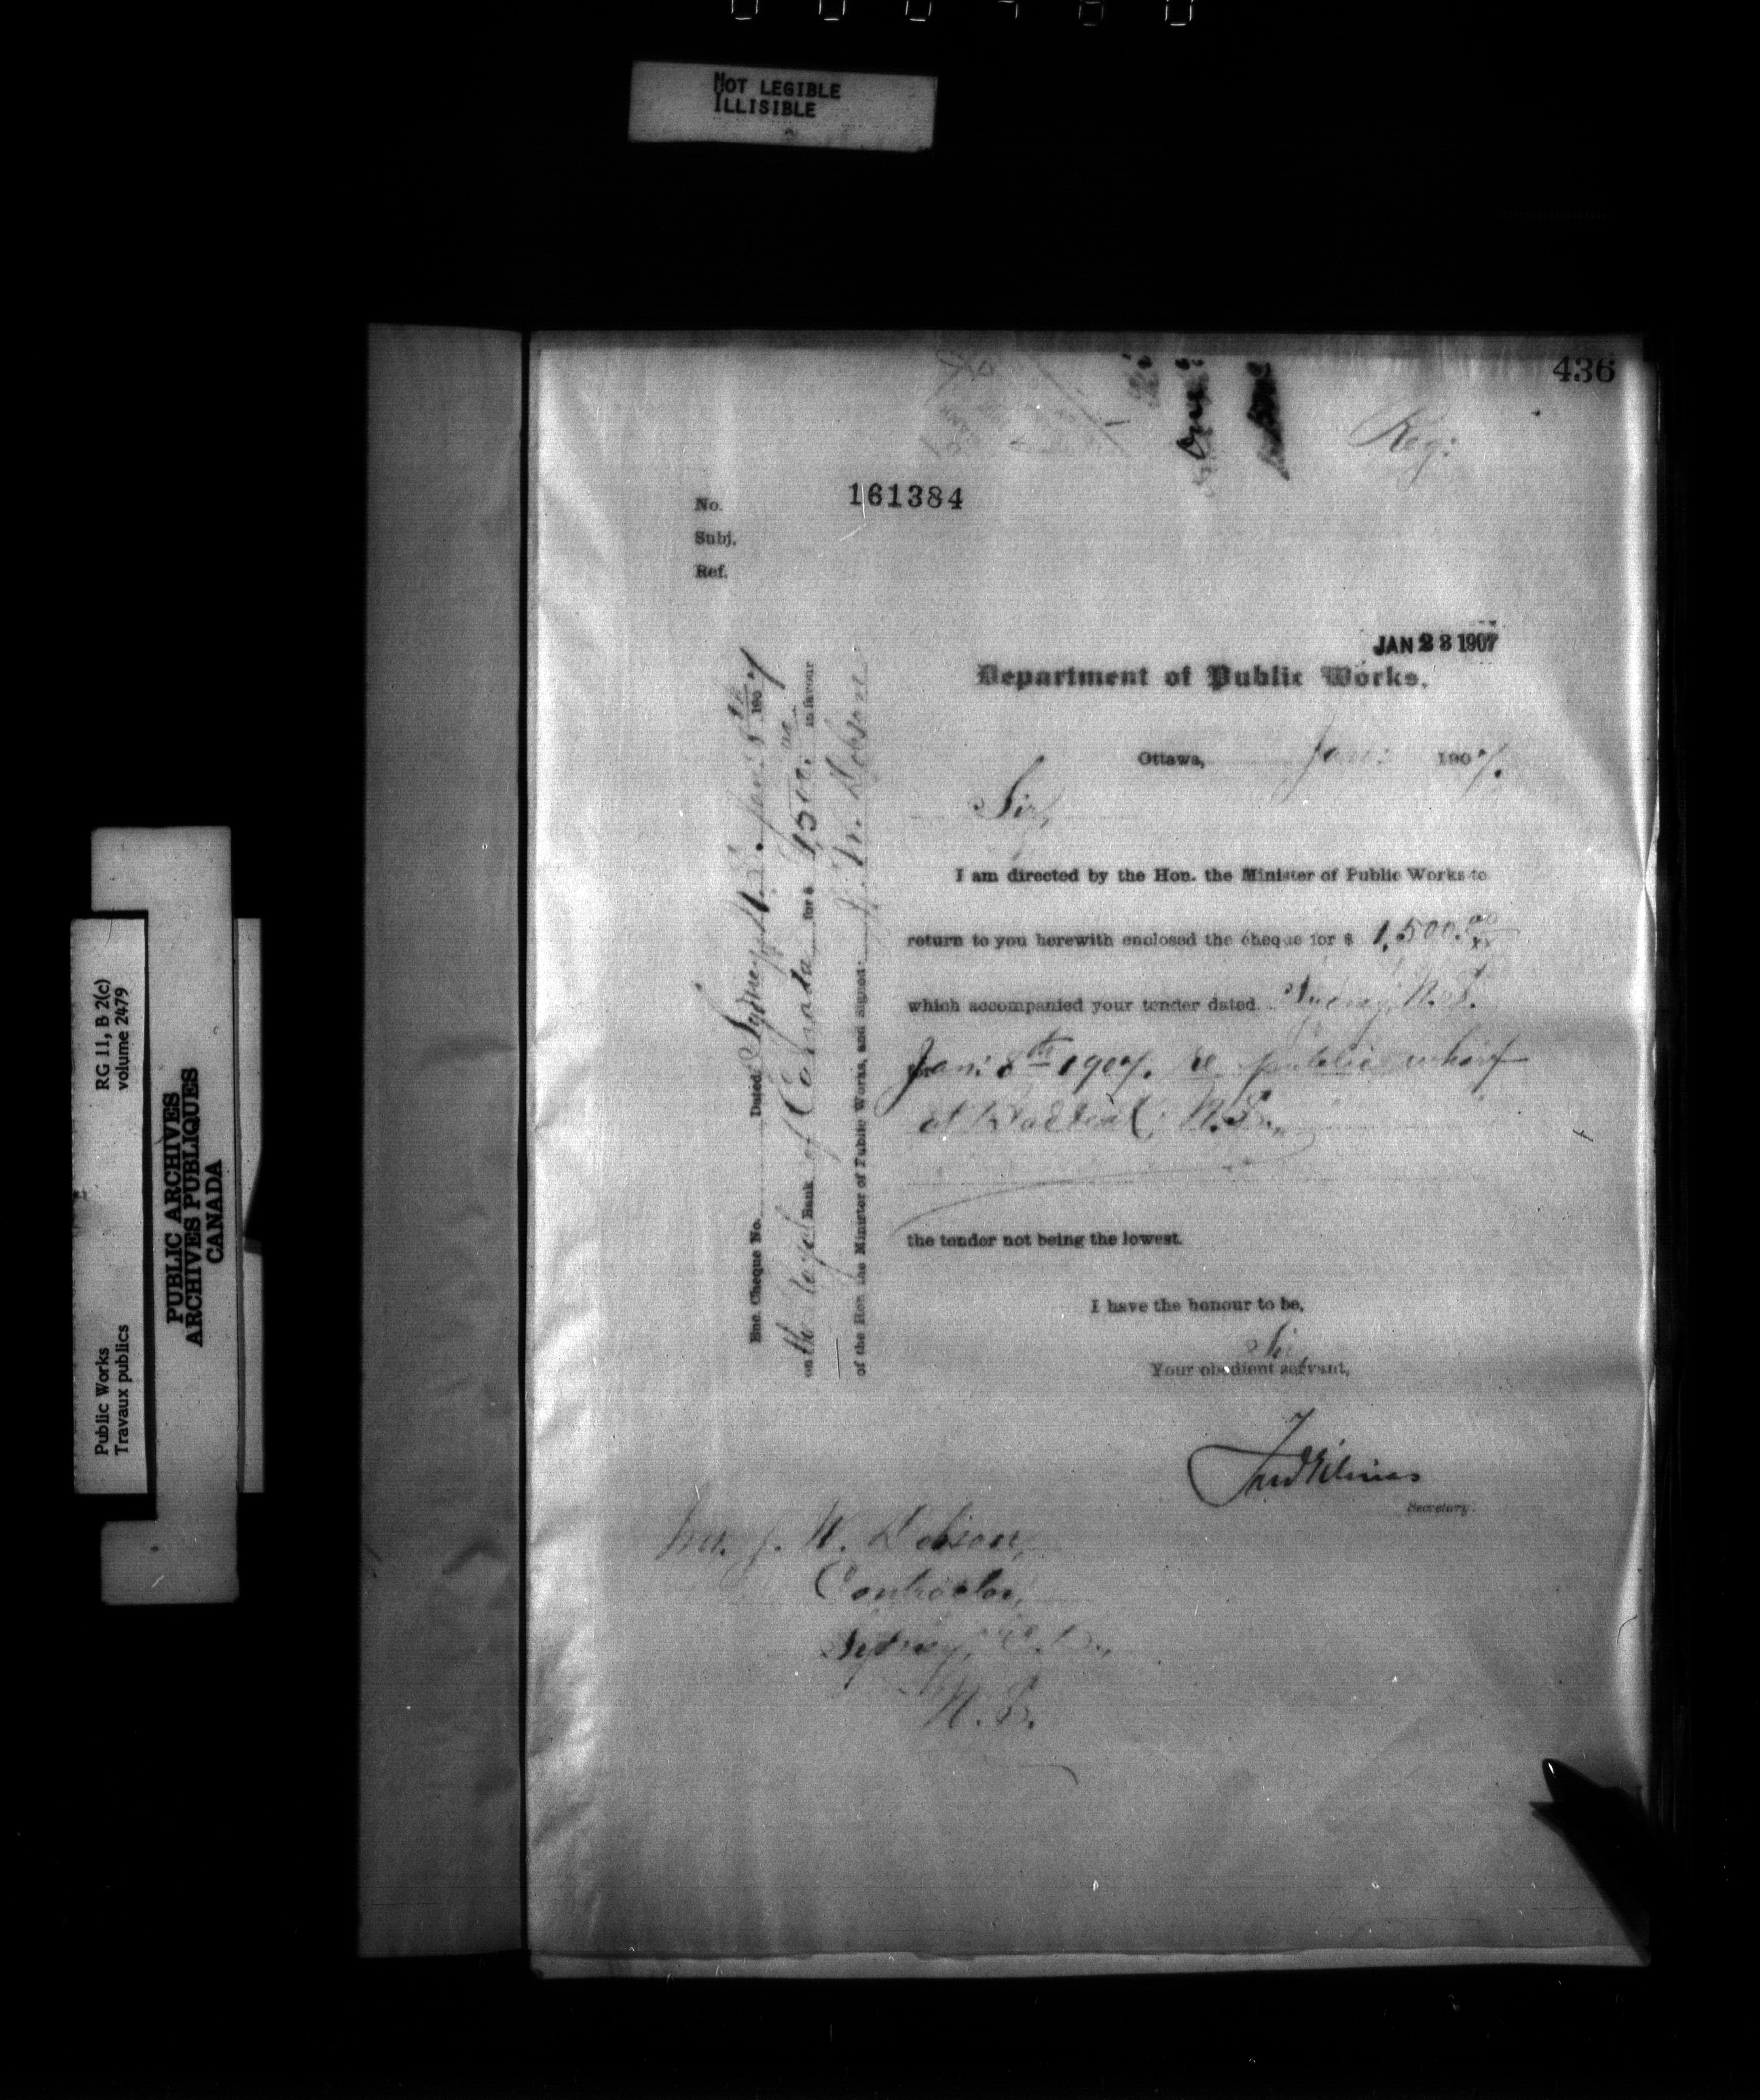 NOT LEGIBLE
ILLISIBLE
436
Reg:
No. 161384
Subj.
Ref.
JAN 23 1907
Department of Public Works.
Ottawa, Jan: 1907.
Sir,
I am directed by the Hon. the Minister of Public Works to
return to you herewith enclosed the cheque for $ 1,500.00/xx
which accompanied your tender dated Sydney, N.S.
Jan: 8th 1907. re public wharf
at Baddeck, N.S.,
the tender not being the lowest.
I have the honour to be,
Sir,
Your obedient servant,
Secretary.
Mr. J. W. Dobson,
Contractor,
Sydney, C.B.,
N.S.
Enc. Cheque No. Dated Sydney N.S. Jan: 8th 1907
on the Royal Bank of Canada for $ 1,500.00 in favour
of the Hon. the Minister of Public Works, and signed: Dobson.
RG 11, B 2(c)
volume 2479
Public Works
Travaux publics
PUBLIC ARCHIVES
ARCHIVES PUBLIQUES
CANADA